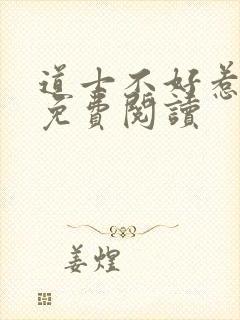 道士不好惹
免費閱讀
姜煌